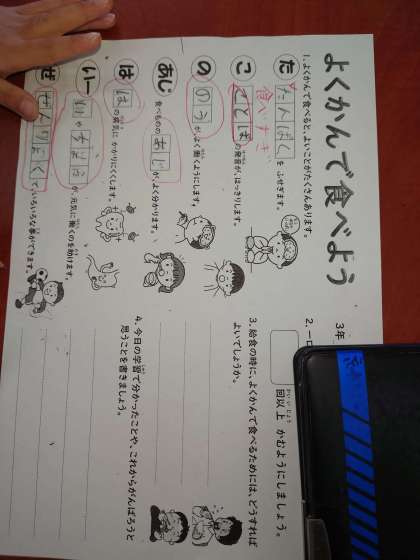 よくかんで食べよう
1. よくかんで食べると、よいことがたくさんあります。
た 食べすぎ を ふせぎます。
こ ことば の発音が、はっきりします。
の のう が、よく働くようにします。
あじ 食べものの あじ が、よく分かります。
は は の病気に かかりにくくします。
いー や が、元気に働くのを助けます。
ぜ ぜんりょく で、いろいろな事ができます。
3年
2. 一口
回以上 かむようにしましょう。
3. 給食の時に、よくかんで食べるためには、どうすれば
よいでしょうか。
4. 今日の学習で分かったことや、これからがんばろうと
思うことを書きましょう。